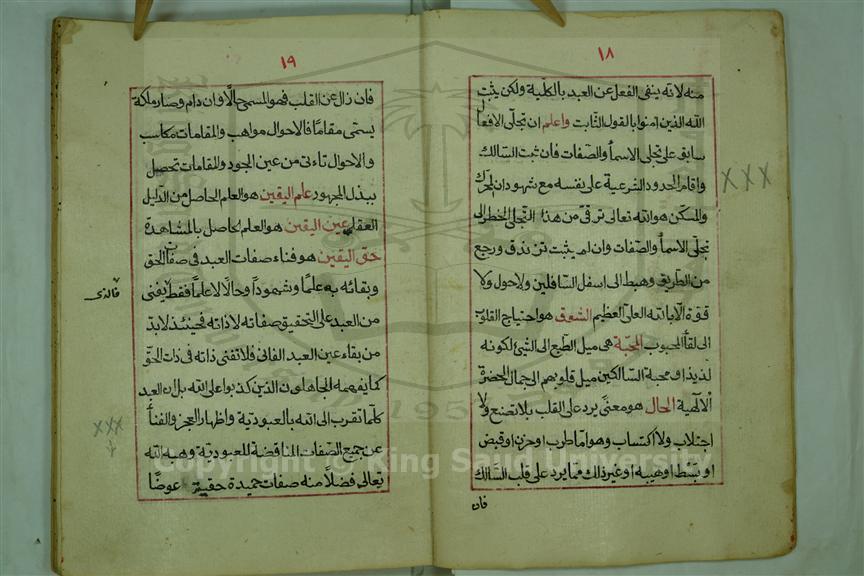 ١٨
منه لانه ينفى الفعل عن العبد بالكلية ولكن يثبت
الله الذين امنوا بالقول الثابت واعلم ان تجلى الافعال
سابق على تجلى الاسماء والصفات فان ثبت السالك
واقام الحدود الشرعية على نفسه مع شهود ان المحرك
والمسكن هو الله تعالى ترقى من هذا التجلى الخطر الى
تجلى الاسماء والصفات وان لم يثبت تزندق ورجع
من الطريق وهبط الى اسفل السافلين ولا حول ولا
قوة الا بالله العلى العظيم الشوق هو احتياج القلوب
الى لقاء المحبوب المحبة هى ميل الطبع الى الشئ لكونه
لذيذا ومحبة السالكين ميل قلوبهم الى جمال الحضرة
الالهية الحال هو معنى يرد على القلب بلا تصنع ولا
اجتلاب ولا اكتساب وهو اما طرب او حزن او قبض
او بسط او هيبه او غير ذلك مما يرد على قلب السالك
فان
١٩
فان زال عن القلب فهو المسمى حالا وان دام وصار ملكة
يسمى مقاما فالاحوال مواهب والمقامات مكاسب
والاحوال تاءتى من عين الجود والمقامات تحصيل
ببذل المجهود علم اليقين هو العلم الحاصل من الدليل
العقلى عين اليقين هو العلم الحاصل بالمشاهدة
حق اليقين هو فناء صفات العبد فى صفات الحق
وبقائه به علما وشهودا وحالا لا علما فقط يفنى
فالذى
من العبد على التحقيق صفاته لا ذاته فحينئذ لا بد
من بقاء عين العبد الفانى فلا تفنى ذاته فى ذات الحق
كما يفهمه الجاهلون الذين كذبوا على الله بل ان العبد
كلما تقرب الى الله بالعبودية واظهار العجز والفناء
عن جميع الصفات المناقضة للعبودية وهبه الله
تعالى فضلا منه صفات حميدة حقيقية عوضا
XXX
XXX
Copyright © King Saud University